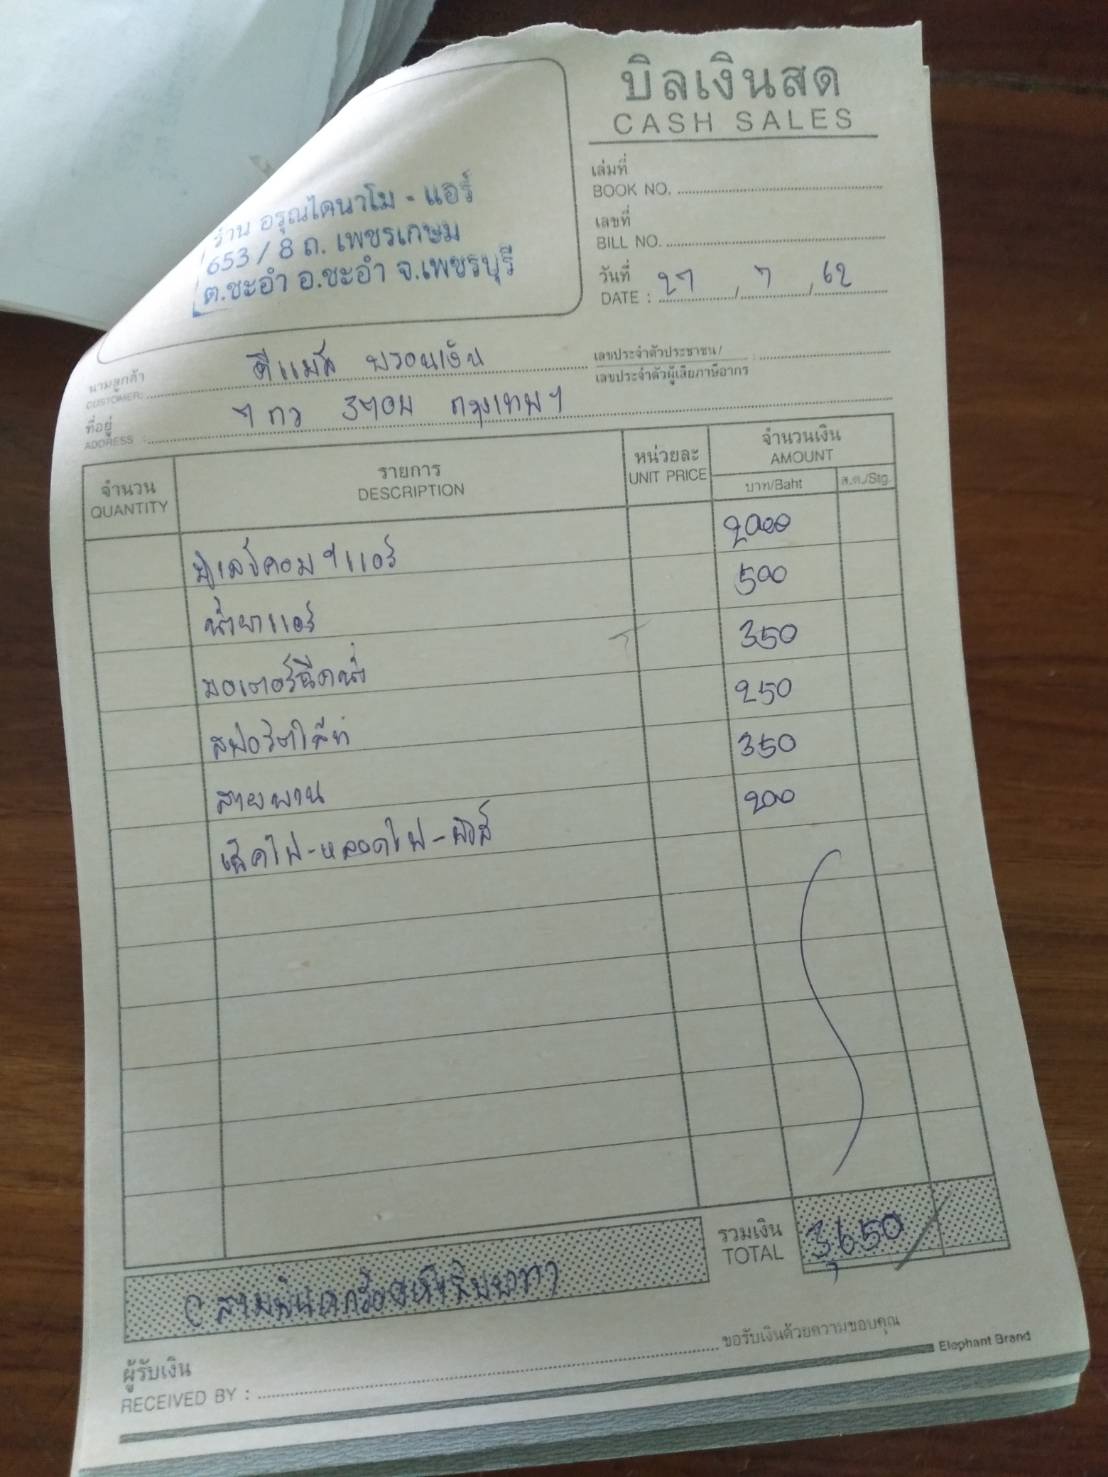 บิลเงินสด
CASH SALES
ร้าน อรุณไดนาโม - แอร์
653 / 8 ถ. เพชรเกษม
ต.ชะอำ อ.ชะอำ จ.เพชรบุรี
เล่มที่
BOOK NO.
เลขที่
BILL NO.
วันที่
DATE : 27 / 7 / 62
นามลูกค้า
CUSTOMER: ดีแม็ค
เลขประจำตัวประชาชน/ :
เลขประจำตัวผู้เสียภาษีอากร
ที่อยู่
ADDRESS : กรุงเทพฯ
จำนวน
QUANTITY
รายการ
DESCRIPTION
หน่วยละ
UNIT PRICE
จำนวนเงิน
AMOUNT
บาท/Baht ส.ต./Stg.
มูเลย์คอมฯแอร์ 2000
น้ำยาแอร์ 500
มอเตอร์ฉีดน้ำ 350
สปอร์ตไลท์ 250
สายพาน 350
เช็คไฟ-หลอดไฟ-ฟิวส์ 200
รวมเงิน
TOTAL 3,650
(สามพันหกร้อยห้าสิบบาท)
ผู้รับเงิน
RECEIVED BY :
ขอรับเงินด้วยความขอบคุณ
Elephant Brand